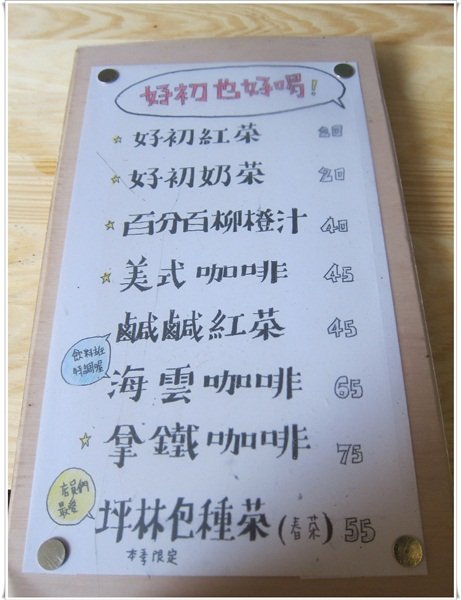 好初也好喝!
好初紅茶 20
好初奶茶 20
百分百柳橙汁 40
美式咖啡 45
鹹鹹紅茶 45
飲料班
特調喔
海雲咖啡 65
拿鐵咖啡 75
店員們
最愛
坪林包種茶(春茶) 55
本季限定